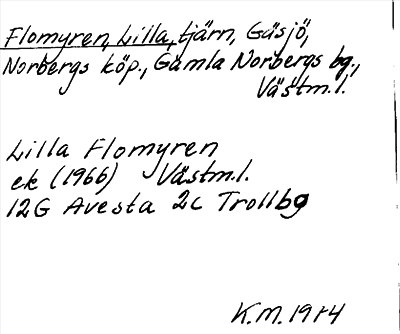 Flomyren, Lilla, tjärn, Gäsjö,
Norbergs köp., Gamla Norbergs bg.,
Västm.l.
Lilla Flomyren
ek (1966) Västm.l.
12G Avesta 2c Trollbg
K.M. 1974